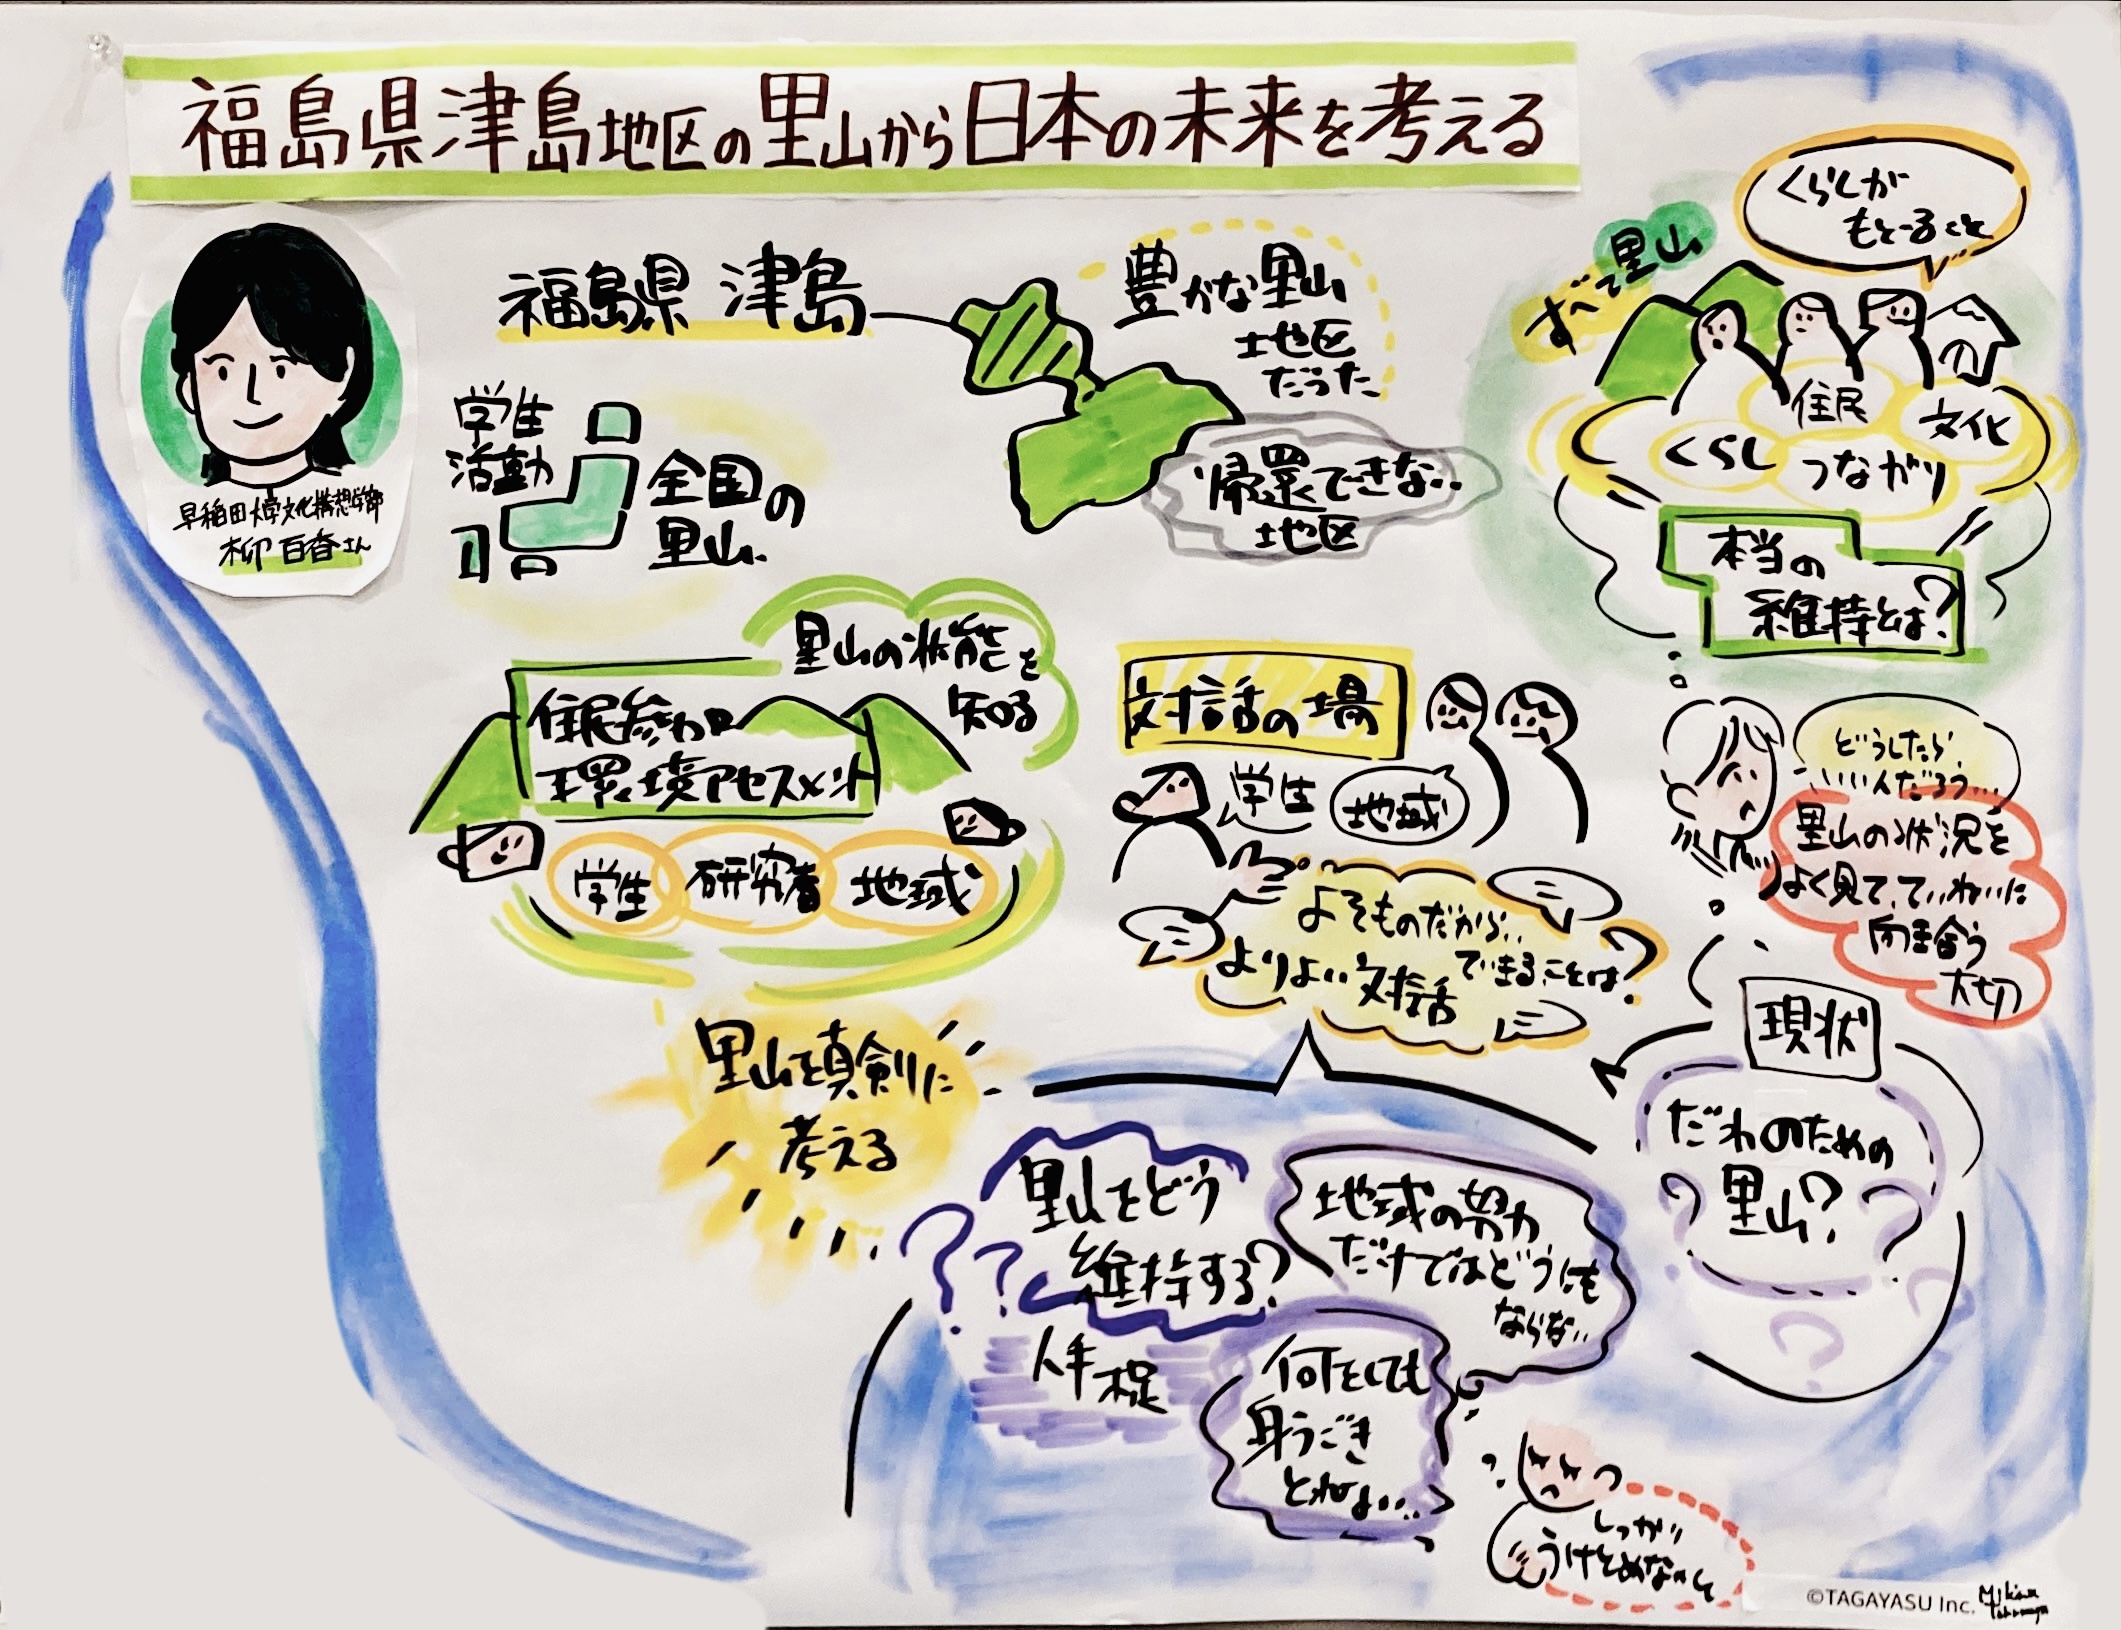 福島県津島地区の里山から日本の未来を考える
早稲田大学文化構想学部
柳 百香さん
福島県 津島
豊かな里山
地区
だった
帰還できない
地区
学生
活動
全国の
里山
里山の状態を
知る
住民参加
環境アセスメント
学生 研究者 地域
里山を真剣に
考える
すべて里山
くらしが
もどること
住民
文化
くらし
つながり
本当の
維持とは?
対話の場
学生
地域
よそものだから
できることは?
よりよい対話
どうしたら
いいんだろう…
里山の状況を
よく見て、ていねいに
向き合う
大切
現状
だれのための
里山?
里山をどう
維持する?
人手不足
地域の努力
だけではどうにも
ならない
何をしても
身うごき
とれない…
しっかり
うけとめないと
©TAGAYASU Inc.